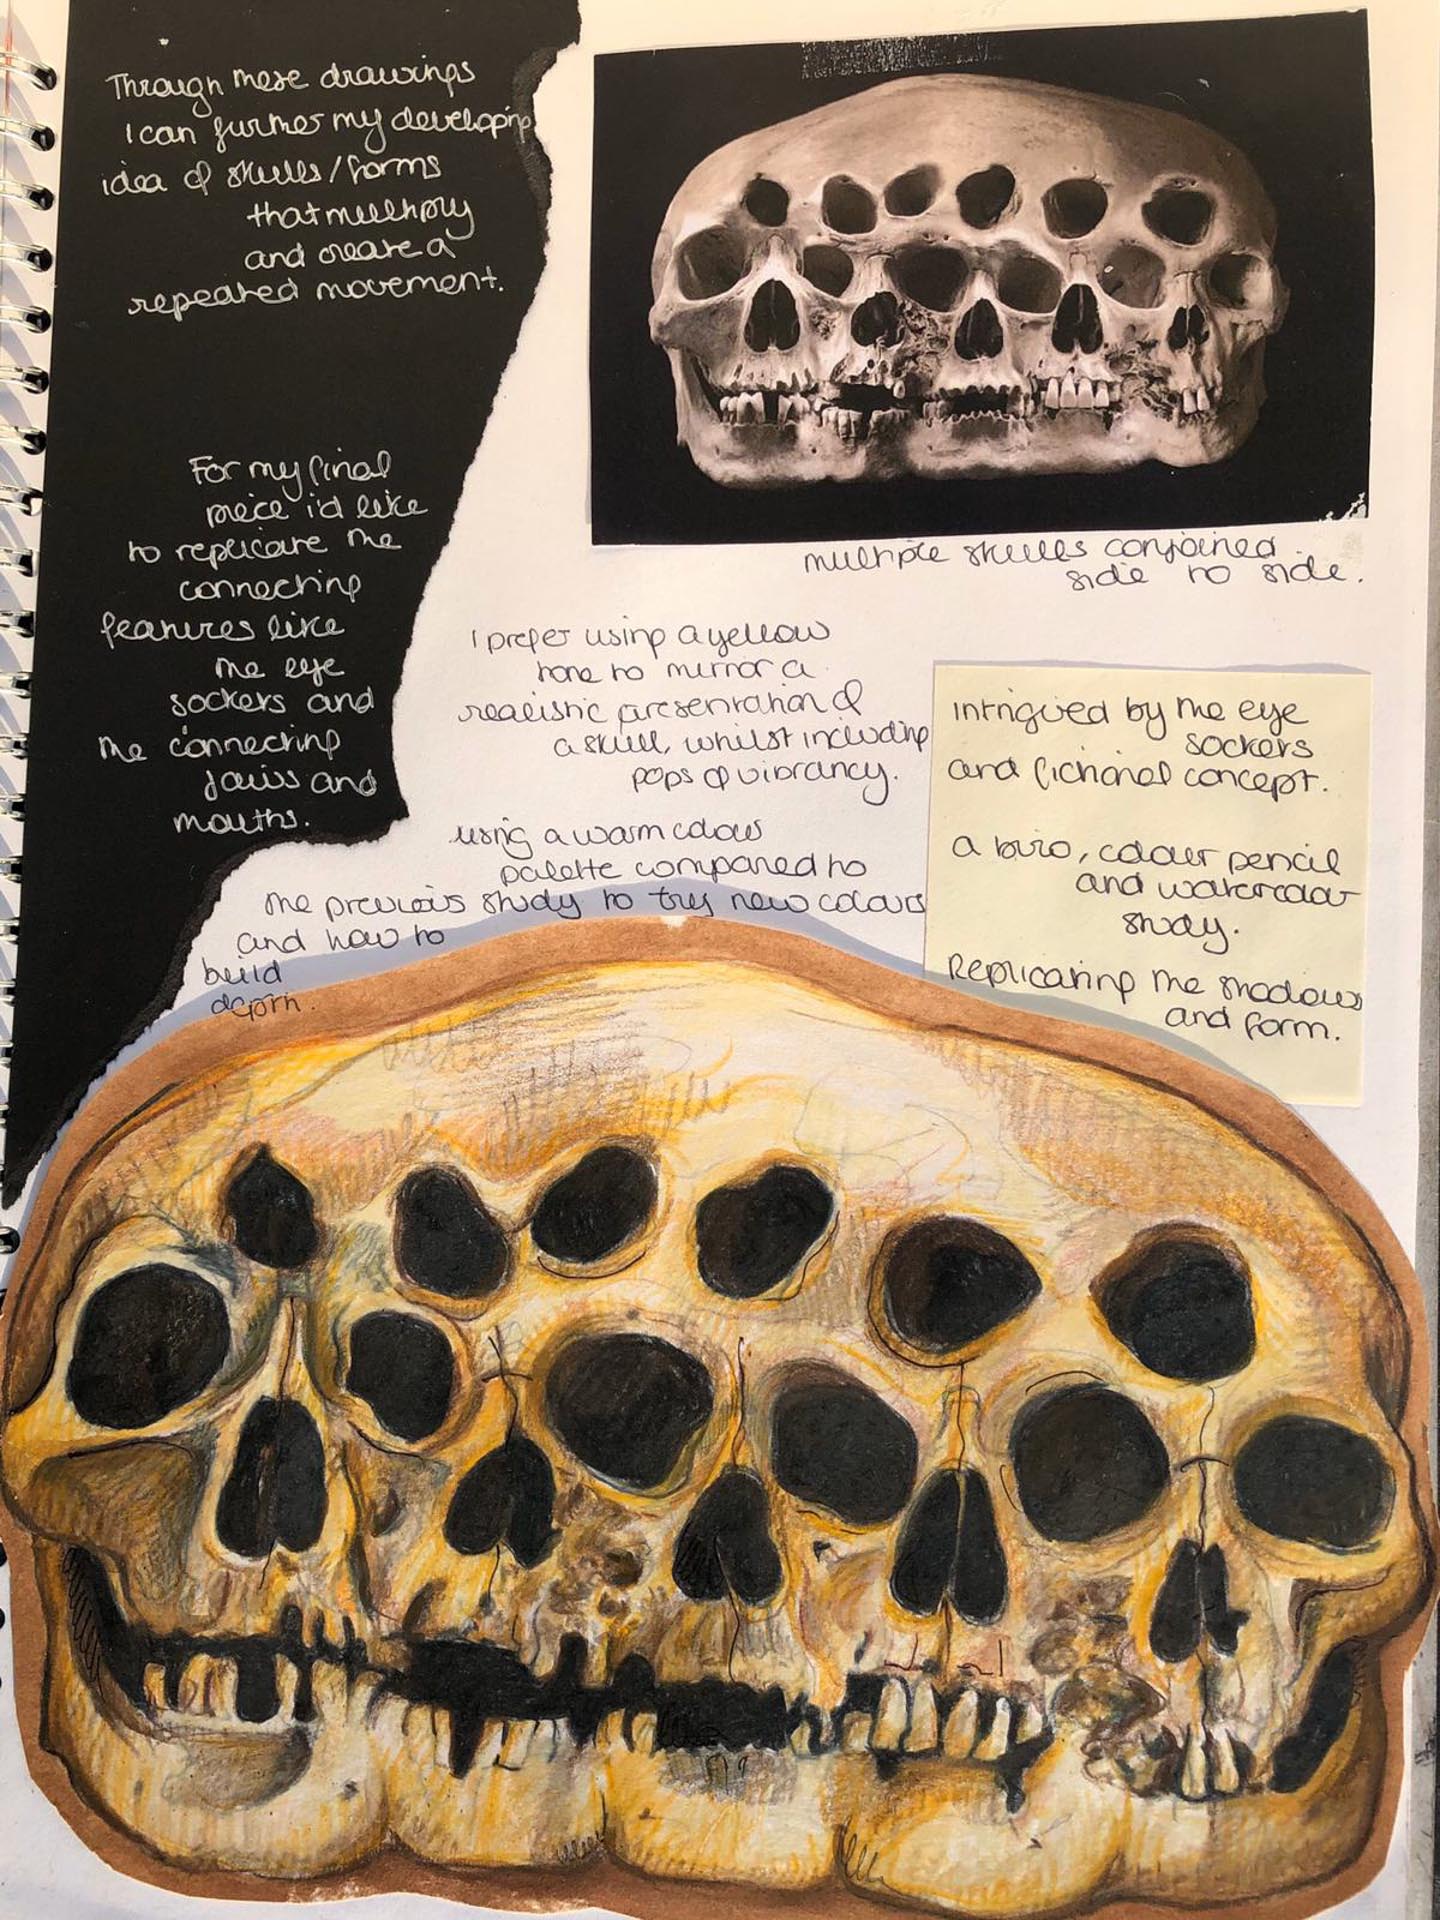 Through these drawings
I can further my developing
idea of skulls/forms
that multiply
and create a
repeated movement.
For my final
piece i'd like
to replicate the
connecting
features like
the eye
sockets and
the connecting
jaws and
mouths.
multiple skulls conjoined
side to side.
I prefer using a yellow
tone to mirror a
realistic presentation of
a skull, whilst including
pops of vibrancy.
using a warm colour
palette compared to
the previous study to try new colours
and how to
build
depth.
intrigued by the eye
sockets
and fictional concept.
a biro, colour pencil
and watercolour
study.
Replicating the shadows
and form.